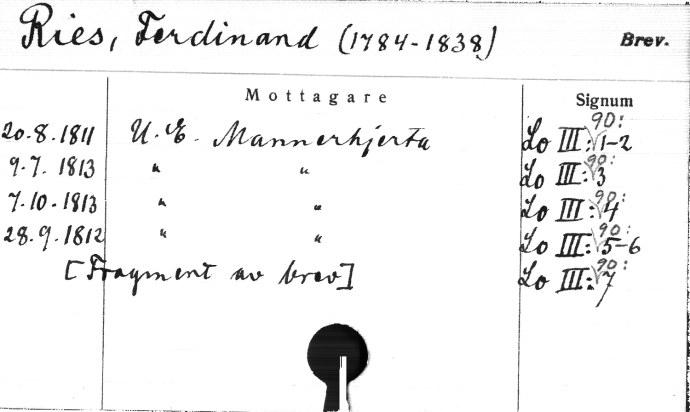 Ries, Ferdinand (1784-1838) Brev.
Mottagare Signum
20.8.1811 U. E. Mannerhjerta Lo III:90:1-2
9.7.1813 " " Lo III:90:3
7.10.1813 " " Lo III:90:4
28.9.1812 " " Lo III:90:5-6
[Fragment av brev] Lo III:90:7